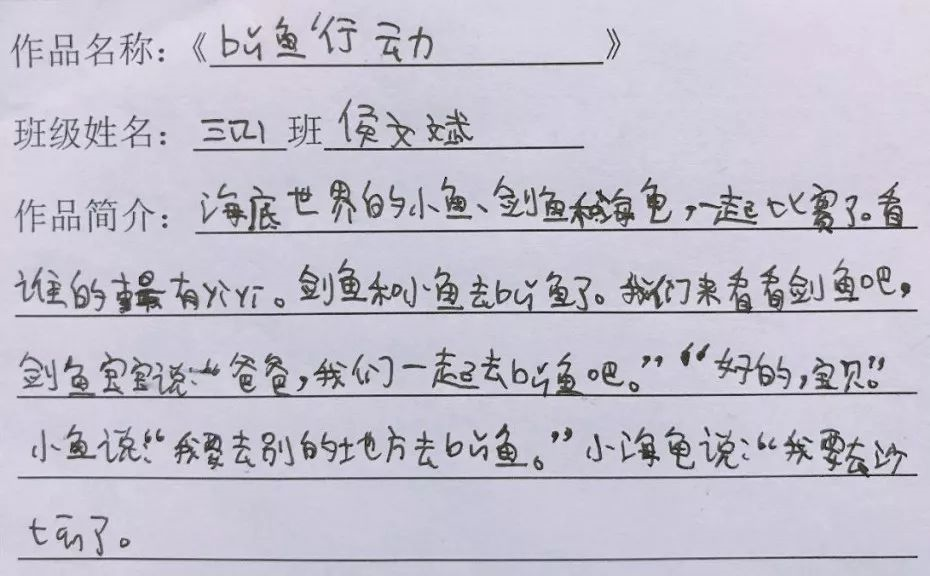 作品名称：《bǔ鱼行动》
班级姓名：三四班侯文斌
作品简介：海底世界的小鱼、剑鱼和海龟，一起比赛了。看
谁的最有yìyì。剑鱼和小鱼去bǔ鱼了。我们来看看剑鱼吧，
剑鱼宝宝说：“爸爸，我们一起去bǔ鱼吧。”“好的，宝贝。”
小鱼说：“我要去别的地方去bǔ鱼。”小海龟说：“我要去沙
了。